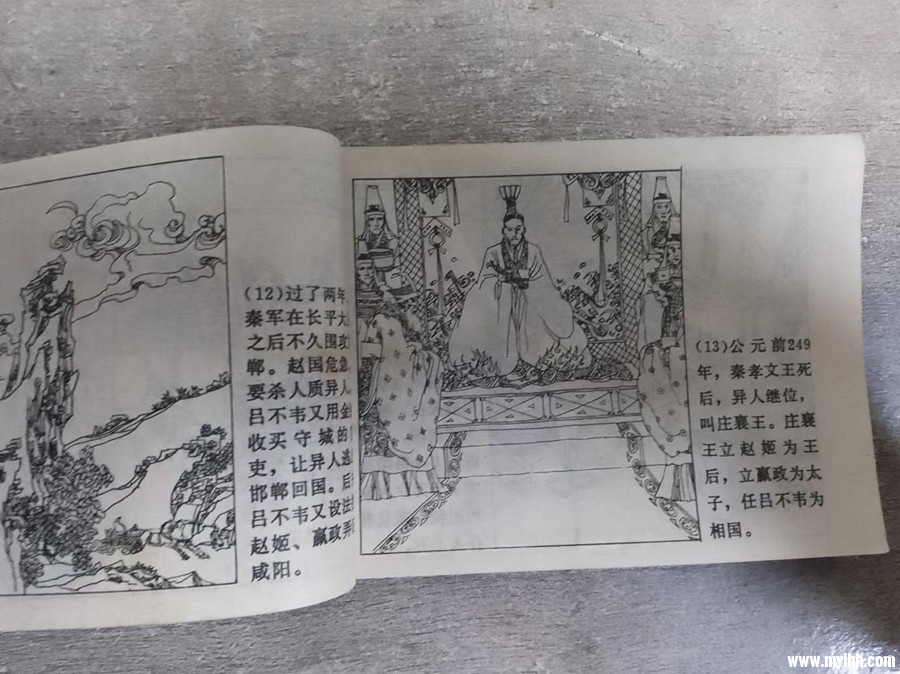 (12)过了两年
秦军在长平大
之后不久围攻
郸。赵国危急
要杀人质异人
吕不韦又用金
收买守城的
吏，让异人逃
邯郸回国。后
吕不韦又设法
赵姬、嬴政弄
咸阳。
(13)公元前249
年，秦孝文王死
后，异人继位，
叫庄襄王。庄襄
王立赵姬为王
后，立嬴政为太
子，任吕不韦为
相国。
www.nylhh.com